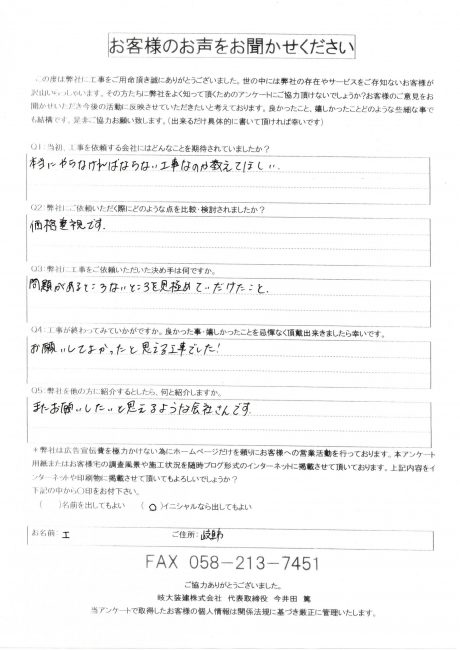 お客様のお声をお聞かせください
この度は弊社に工事をご用命頂き誠にありがとうございました。世の中には弊社の存在やサービスをご存知ないお客様が
沢山いらっしゃいます。その方たちに弊社をよく知って頂くためのアンケートにご協力頂けないでしょうか?お客様のご意見をお
聞かせいただき今後の活動に反映させていただきたいと考えております。良かったこと、嬉しかったことどのような些細な事で
も結構です、是非ご協力お願い致します。(出来るだけ具体的に書いて頂ければ幸いです)
Q1:当初、工事を依頼する会社にはどんなことを期待されていましたか?
本当にやらなければならない工事なのか教えてほしい.
Q2:弊社にご依頼いただく際にどのような点を比較・検討されましたか?
価格重視です.
Q3:弊社に工事をご依頼いただいた決め手は何ですか。
問題があるところないところを見極めていただけたこと.
Q4:工事が終わってみていかがですか。良かった事・嬉しかったことを忌憚なく頂戴出来きましたら幸いです。
お願いしてよかったと思える工事でした!
Q5:弊社を他の方に紹介するとしたら、何と紹介しますか。
またお願いしたいと思えるような会社さんです.
*弊社は広告宣伝費を極力かけない為にホームページだけを頼りにお客様への営業活動を行っております。本アンケート
用紙またはお客様宅の調査風景や施工状況を随時ブログ形式のインターネットに掲載させて頂いております。上記内容をイ
ンターネットや印刷物に掲載させて頂いてもよろしいでしょうか?
下記の中から〇印をお付下さい。
( )名前を出してもよい (○)イニシャルなら出してもよい
お名前: エ ご住所: 岐阜市
FAX 058-213-7451
ご協力ありがとうございました。
岐大装建株式会社 代表取締役 今井田 篤
当アンケートで取得したお客様の個人情報は関係法規に基づき厳正に管理いたします。